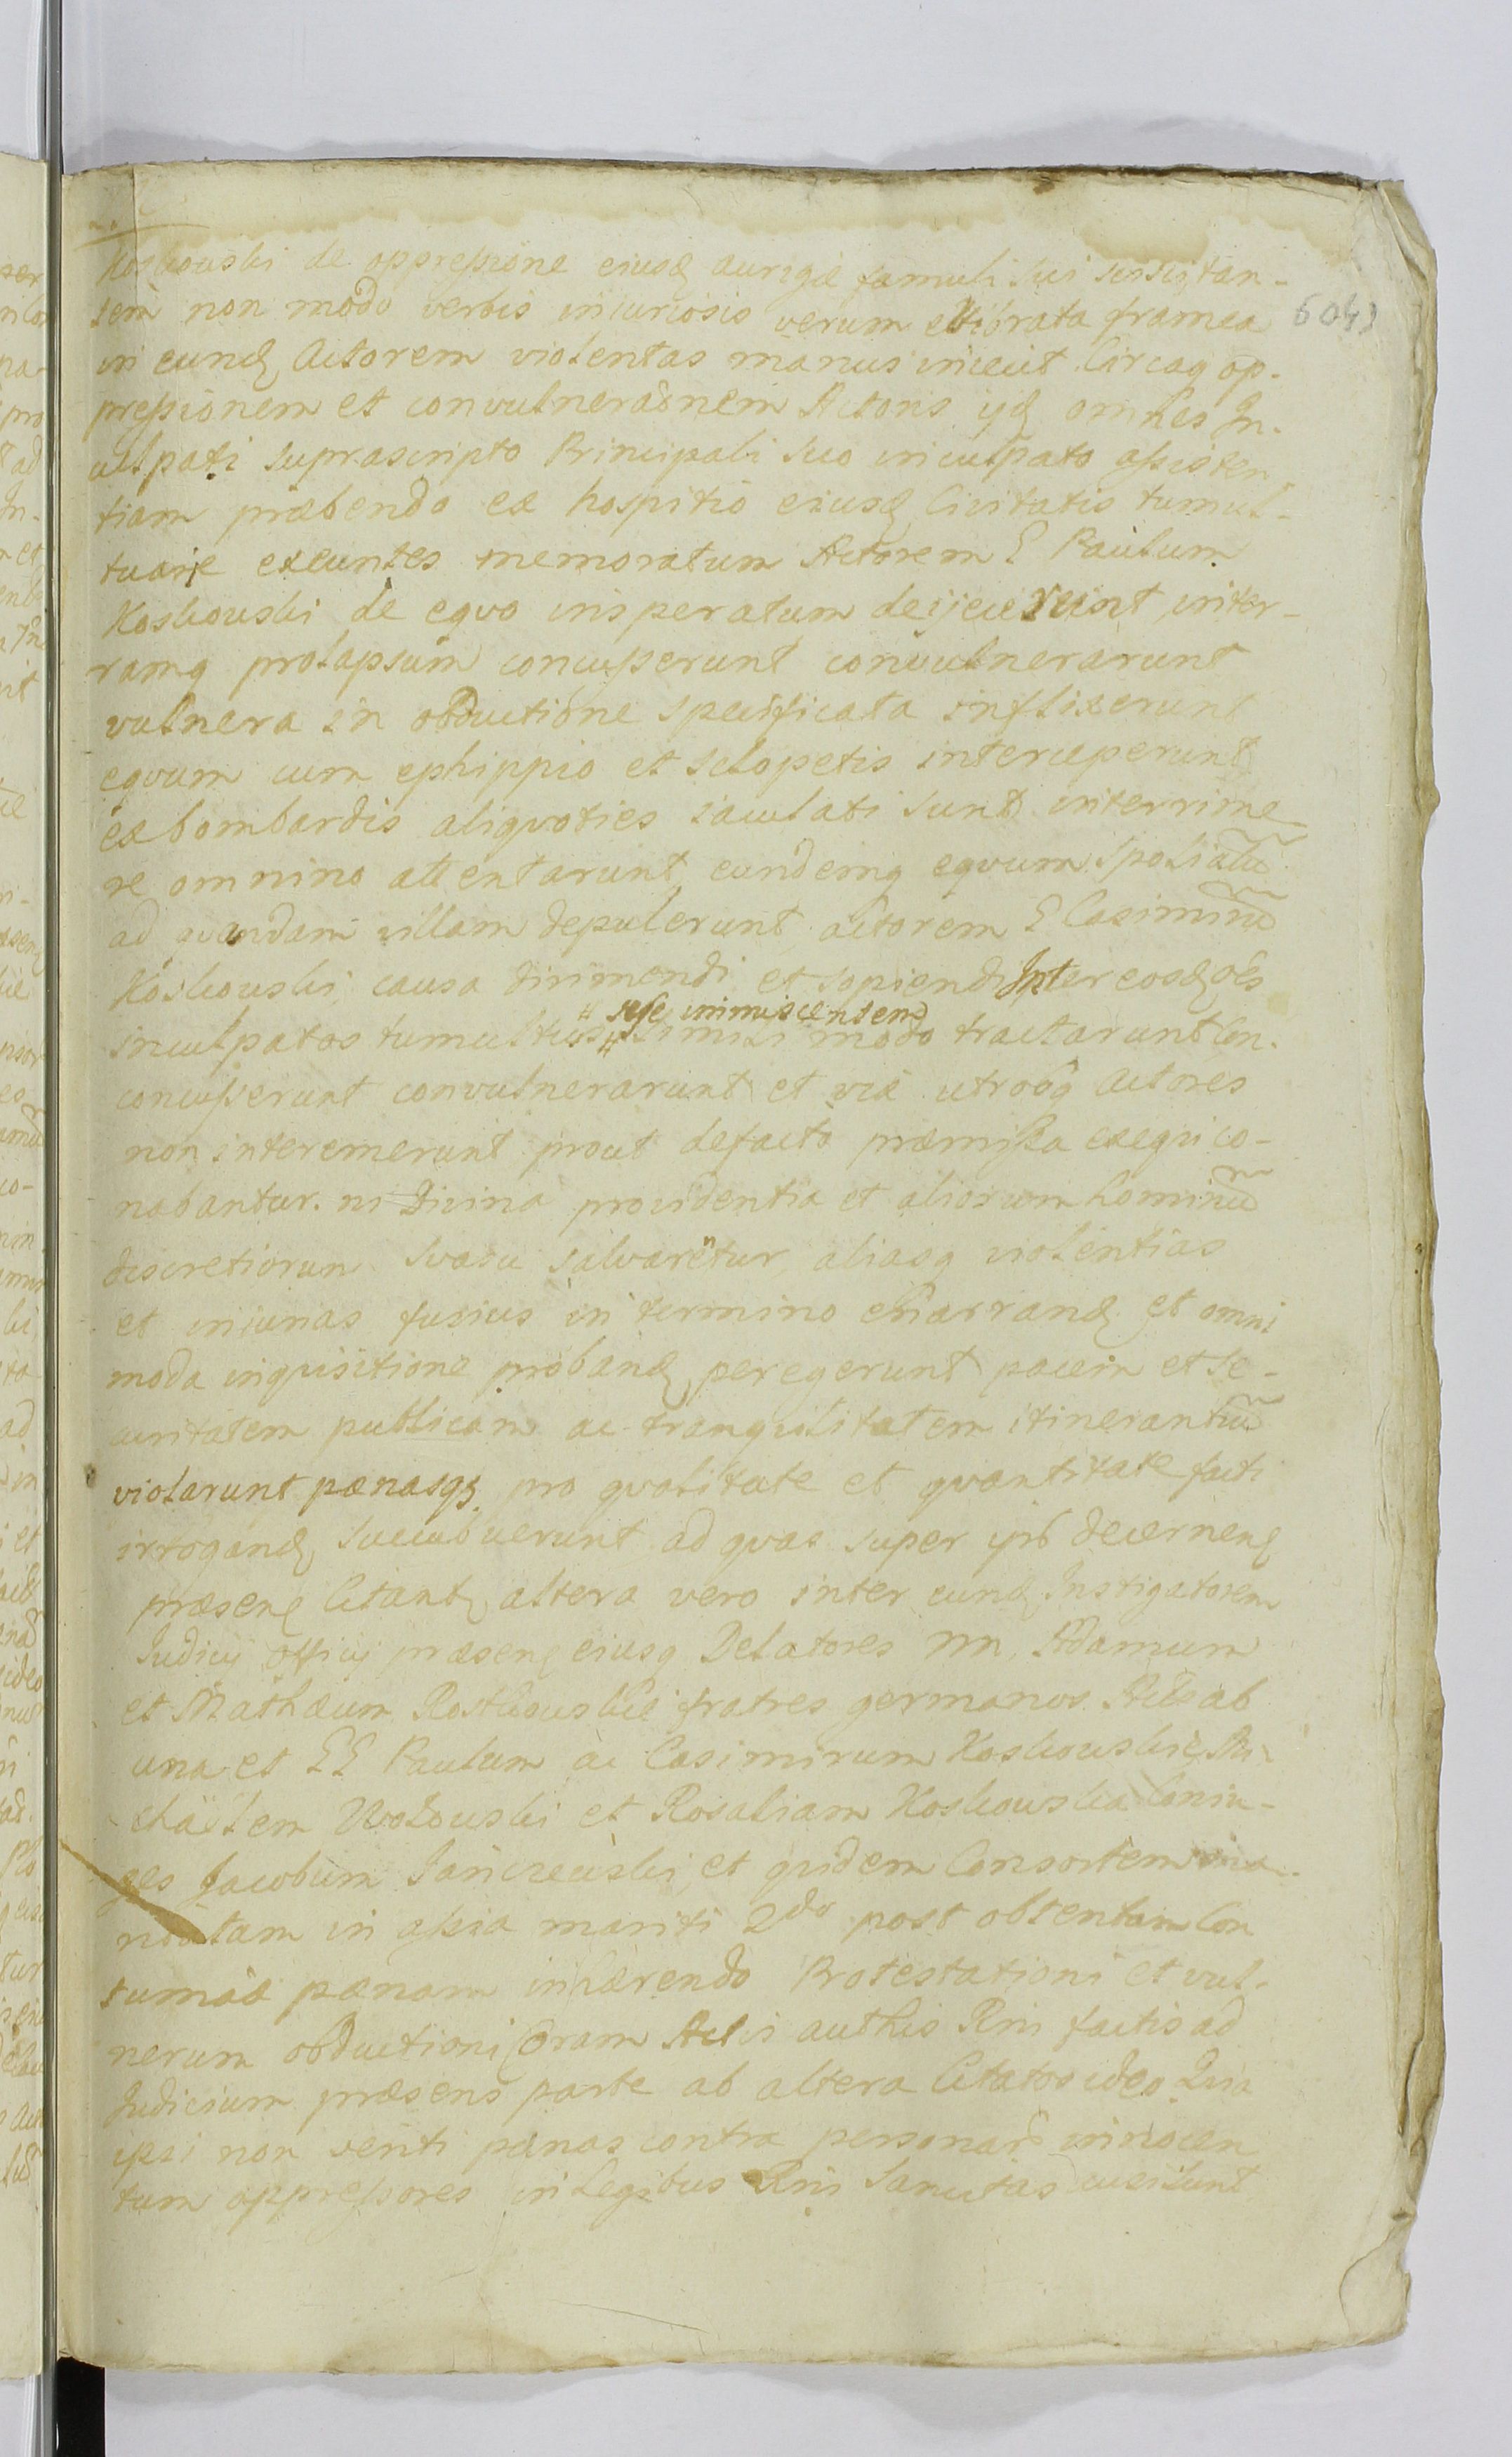 Koskouski de oppressione eiusd aurigæ famuli sui sciscitan-
tem non modo verbis iniuriosis verum evibrata framea
6043
in eund Actorem violentas manus iniecit Circaq op-
pressionem et convulneraonem Actoris ijd omnes In-
culpati suprascripto Principali suo inculpato assisten
tiam præbendo ex hospitio eiusd Civitatis tumul-
tuarie exeuntes memoratum Actorem G Paulum
Koskouski de equo insperatum deijecerunt, inter-
ramq prolapsum concusserunt convulnerarunt
vulnera in obductione specificata inflixerunt
equum cum ephippio et sclopetis interceperunt
ex bombardis aliquoties iaculati sunt interime
re omnino attentarunt eundemq equum spoliatu
ad quandam villam depulerunt, actorem G Casimirum
Koskouski, causa dirimendi et sopiendi Inter eosd oes
# sese immiscentem
inculpatos tumultus # simili modo tractarunt Con-
concusserunt convulnerarunt et vix utrosq Actores
non interemerunt prout defacto præmissa exequi co-
nabantur. ni Divina providentia et aliorum hominu
discretiorum svasu salvarentur, aliasq violentias
et iniurias fusius in termino enarrand et omni
moda inquisitione proband peregerunt pacem et se-
curitatem publicam ac tranquilitatem itinerantiu
violarunt pænasqz pro qvalitate et qvantitate facti
irrogand succubuerunt ad quas super ips decernend
præsen Citant, altera vero inter eund Instigatorem
Judicij officij præsen eiusq Delatores MM, Adamum
et Mathæum Rostkouskie fratres germanos Actores ab
una et GG Paulum ac Casimirum Koskouskie, Mi-
chaëlem Wolouski et Rosaliam Koskouska Coniu-
ges Jacobum Janczeuski, et quidem Consortem
in assia mariti 2do post obtentam Con
tumaæ pænam inhærendo Protestationi et vul-
nerum obductioni Coram Actis authis Rni factis ad
Judicium præsens parte ab altera Citatos ideo Quia
ipsi non veriti pænas contra personar innocen
tum oppressores in Legibus Rni Sancitas